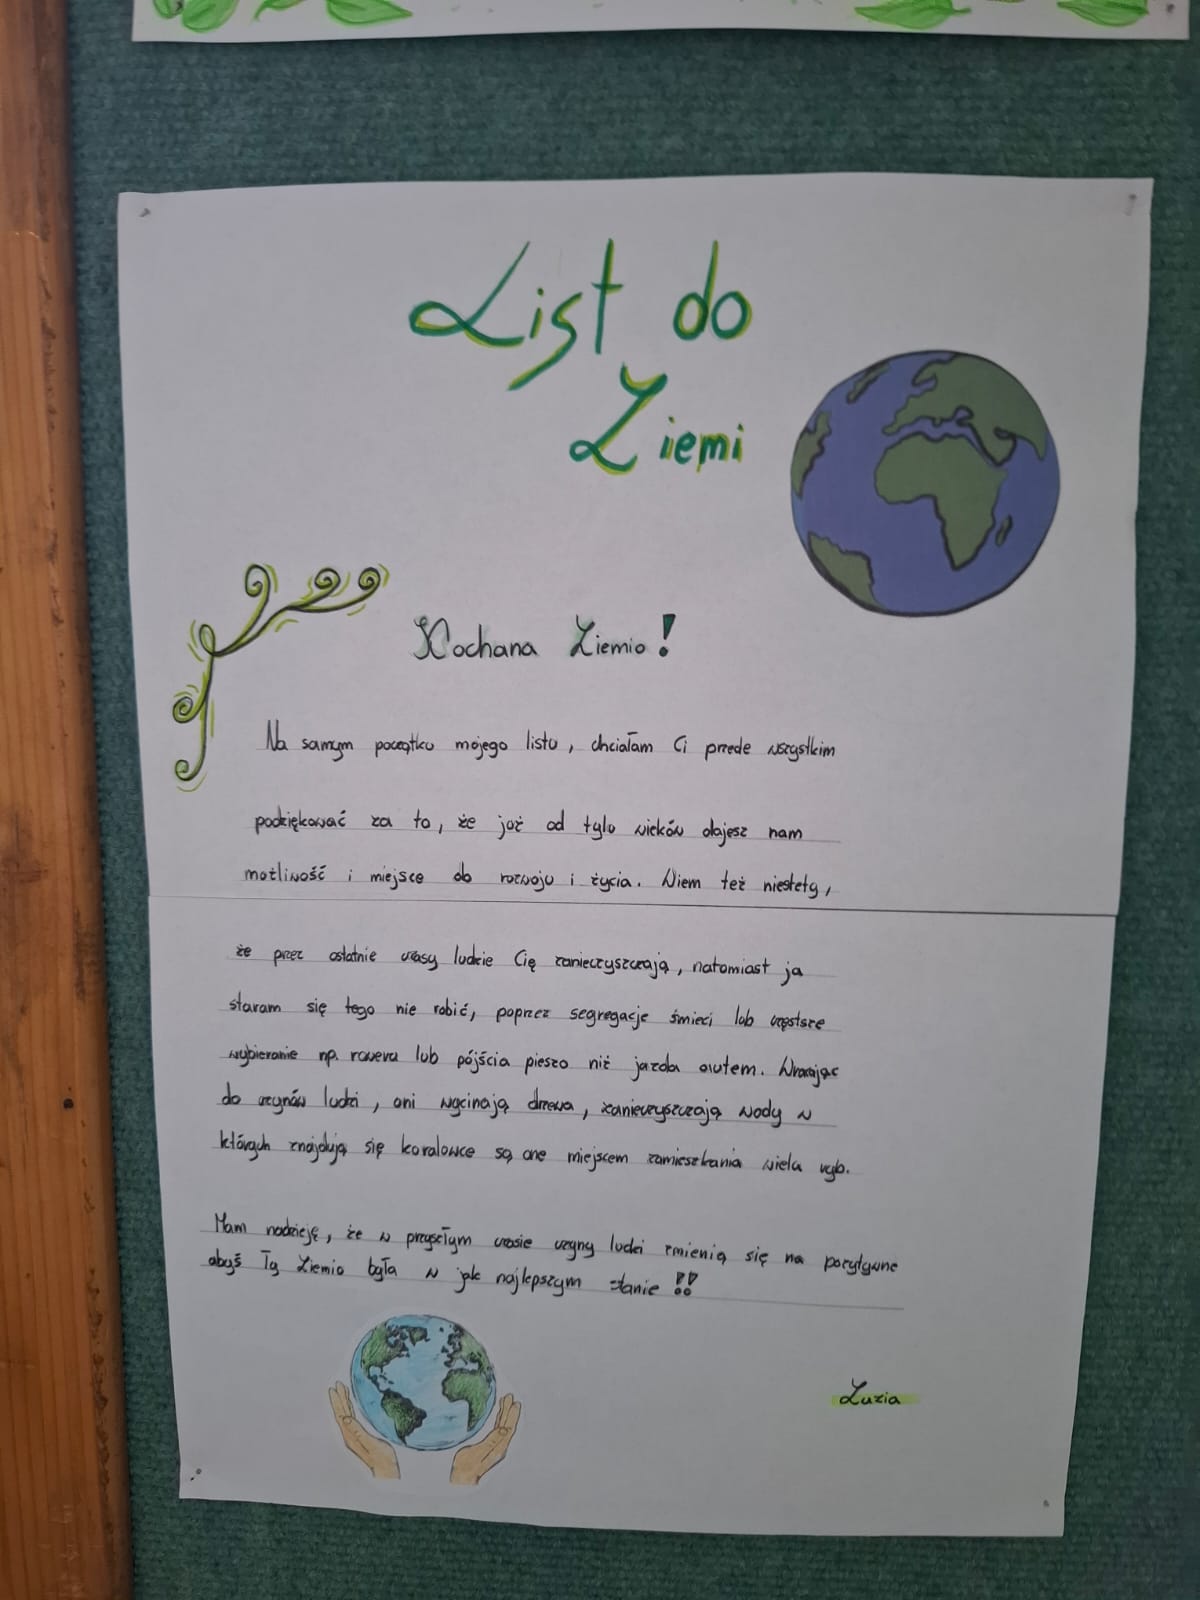 List do
Ziemi
Kochana Ziemio!
Na samym początku mojego listu, chciałam Ci przede wszystkim
podziękować za to, że już od tylu wieków dajesz nam
możliwość i miejsce do rozwoju i życia. Wiem też niestety,
że przez ostatnie czasy ludzie Cię zanieczyszczają, natomiast ja
staram się tego nie robić, poprzez segregacje śmieci lub częstsze
wybieranie np. roweru lub pójścia pieszo niż jazda autem. Wracając
do czynów ludzi, oni wycinają drzewa, zanieczyszczają wody w
których znajdują się koralowce są one miejscem zamieszkania wielu ryb.
Mam nadzieję, że w przyszłym czasie czyny ludzi zmienią się na pozytywne
abyś Ty Ziemio była w jak najlepszym stanie !!
Zuzia